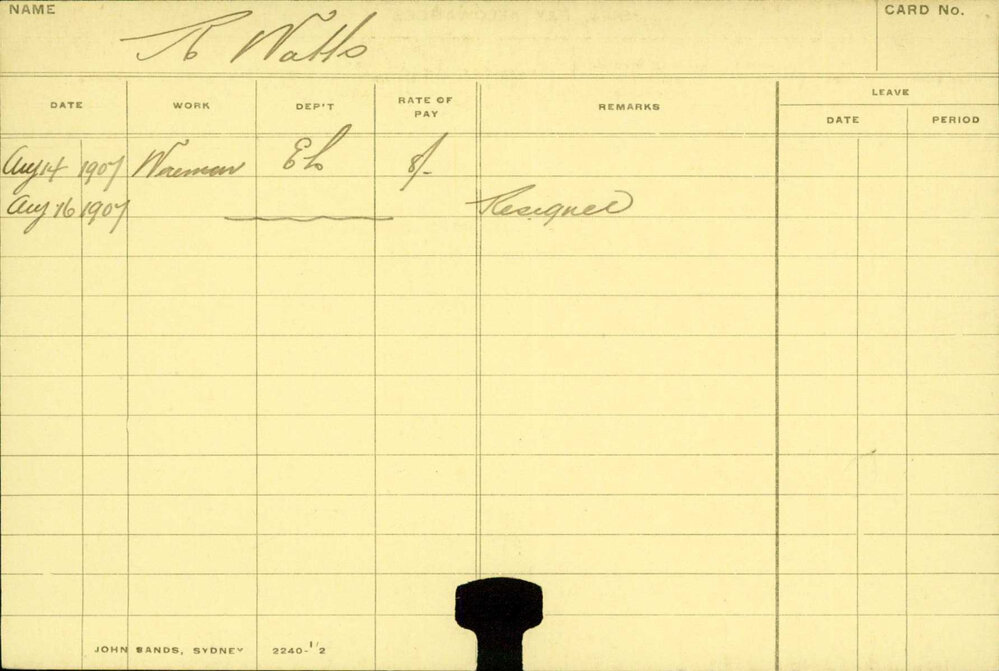 NAME R Watts CARD No.
DATE WORK DEP'T RATE OF PAY REMARKS LEAVE
DATE PERIOD
Aug 14 1907 Wireman EL 8/-
Aug 16 1907 Resigned
JOHN SANDS, SYDNEY 2240-1/2